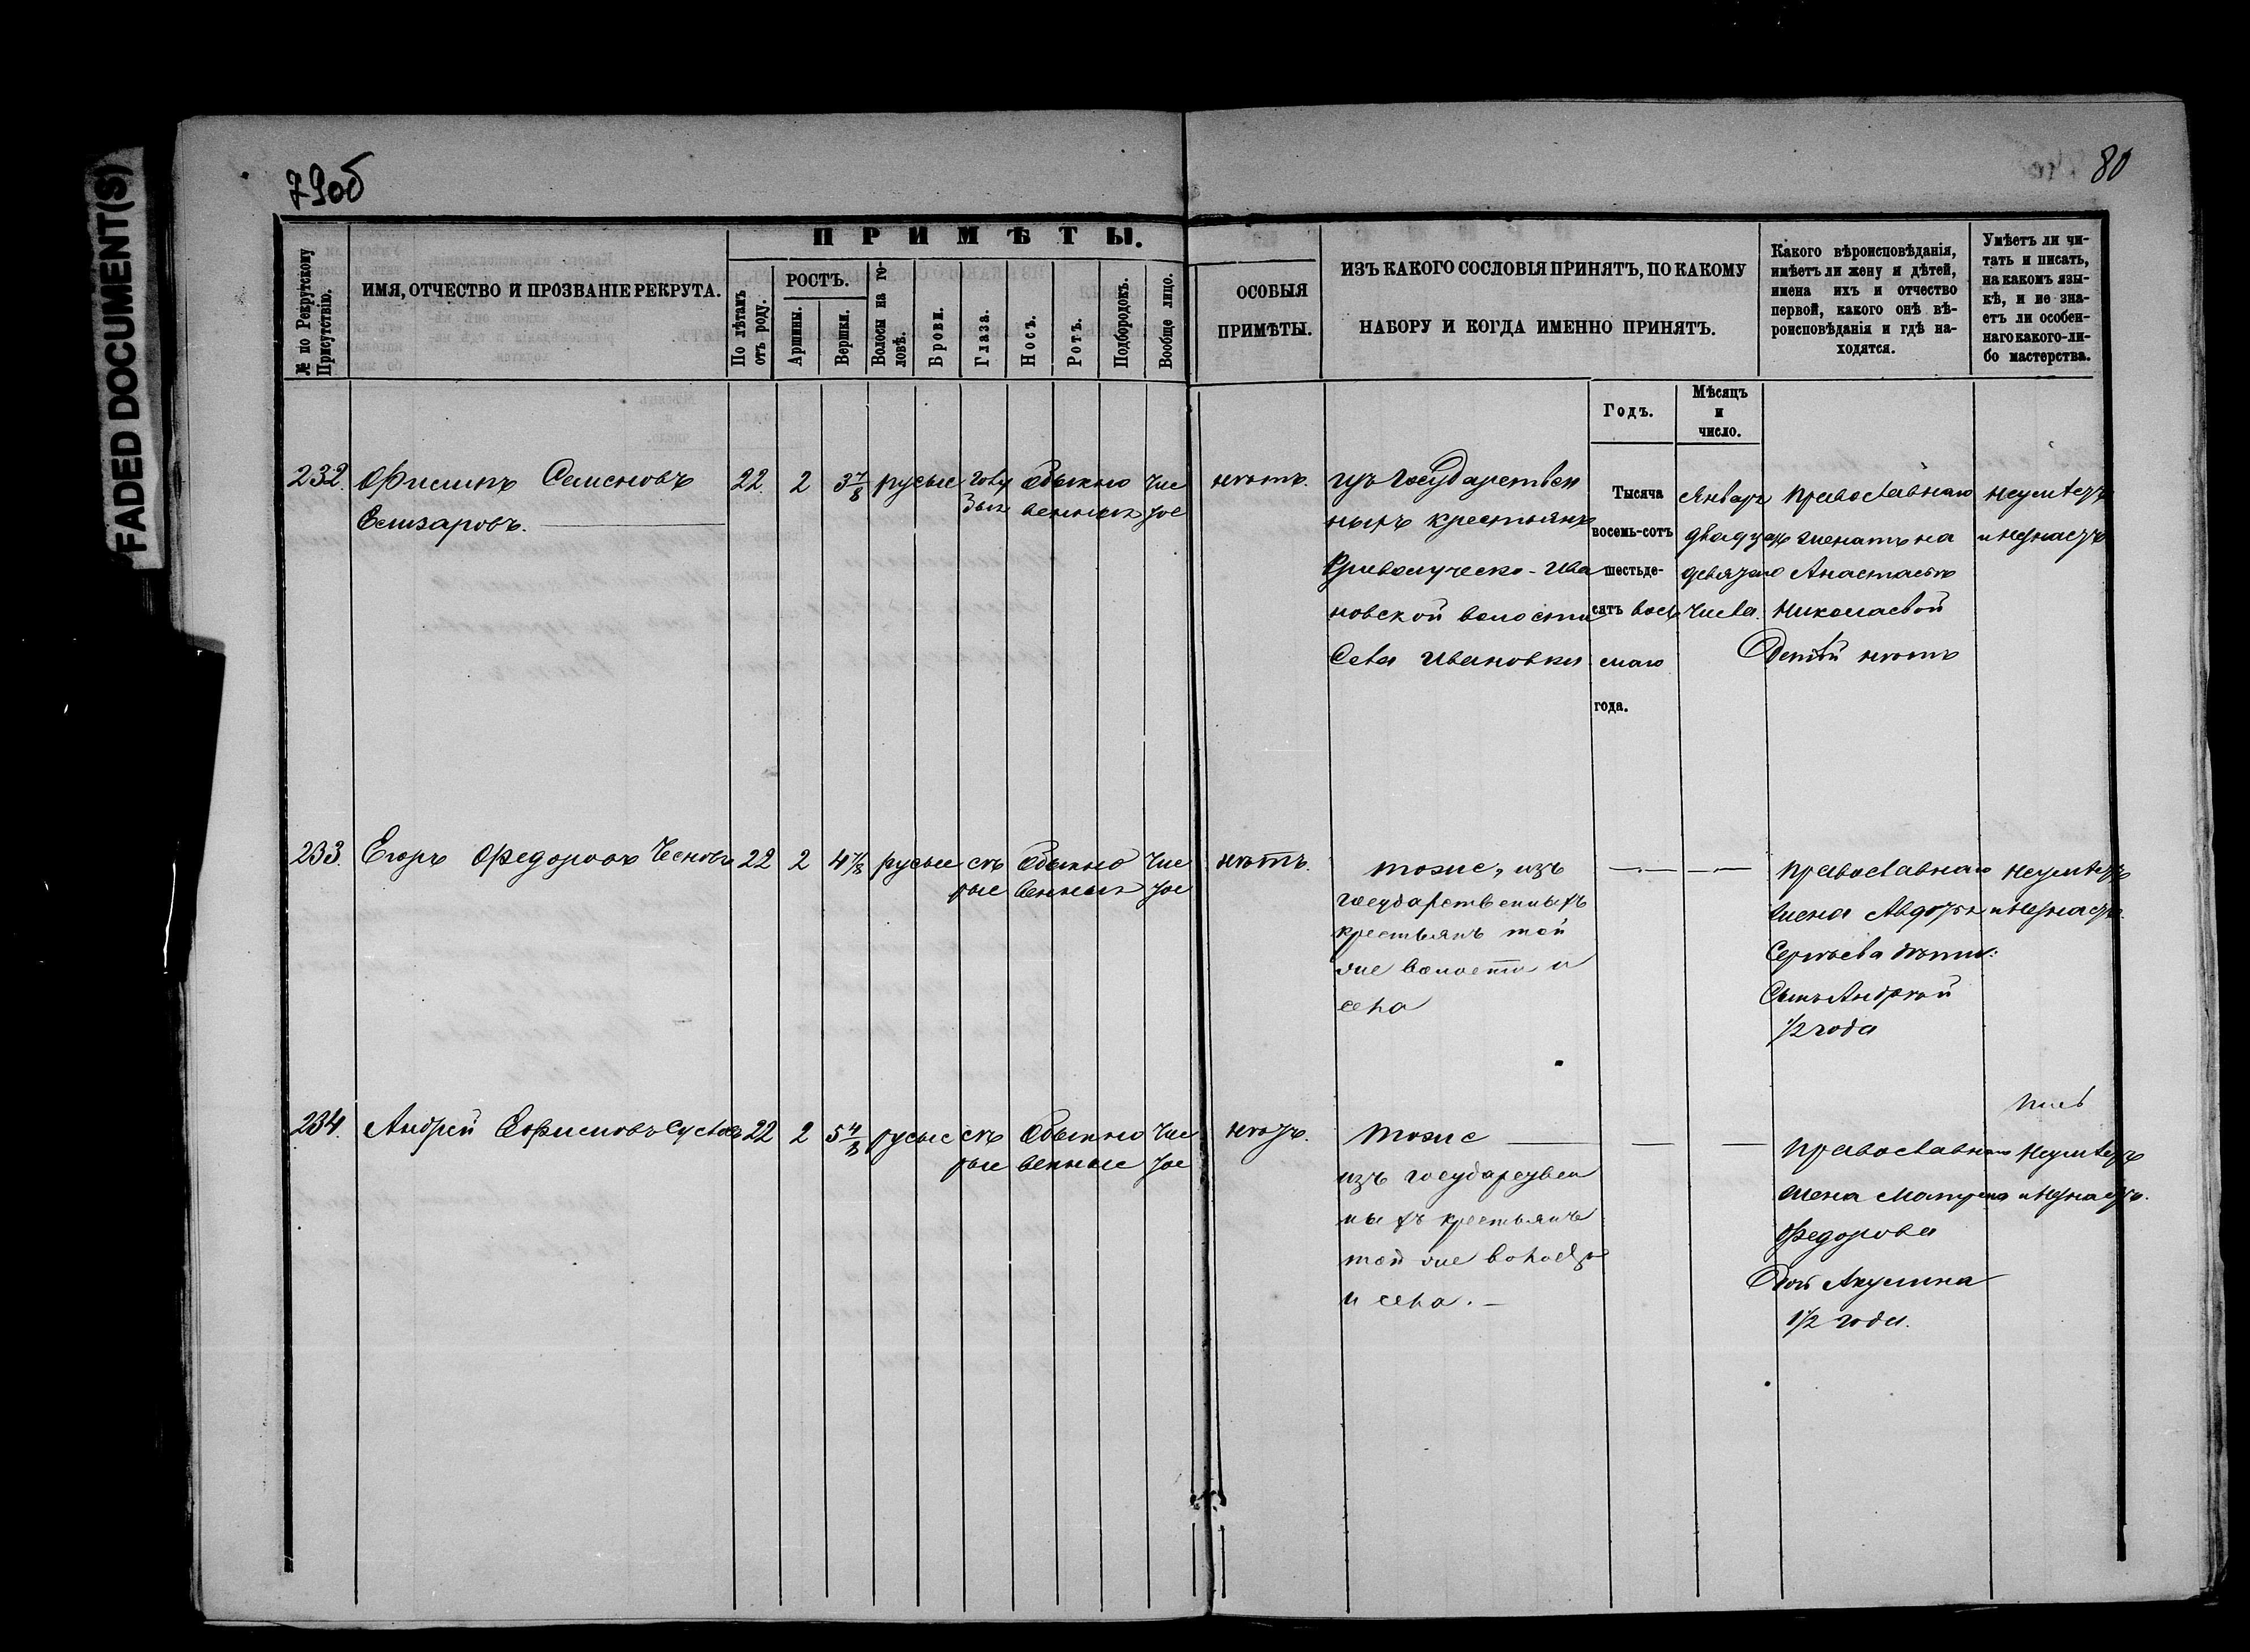 FADED DOCUMENT(S)
79об
80
№ по Рекрутскому
Присутствію.
ИМЯ, ОТЧЕСТВО И ПРОЗВАНІЕ РЕКРУТА.
ПРИМѢТЫ.
По лѣтамъ
отъ роду.
РОСТЪ.
Аршины.
Вершки.
Волосы на го-
ловѣ.
Брови.
Глаза.
Носъ.
Ротъ.
Подбородокъ.
Вообще лицо.
ОСОБЫЯ
ПРИМѢТЫ.
ИЗЪ КАКОГО СОСЛОВІЯ ПРИНЯТЪ, ПО КАКОМУ
НАБОРУ И КОГДА ИМЕННО ПРИНЯТЪ.
Какого вѣроисповѣданія,
имѣетъ ли жену и дѣтей,
имена ихъ и отчество
первой, какого онѣ вѣ-
роисповѣданія и гдѣ на-
ходятся.
Умѣетъ ли чи-
тать и писать,
на какомъ язы-
кѣ, и не зна-
етъ ли особен-
наго какого-ли-
бо мастерства.
Годъ.
Мѣсяцъ
и
число.
232.
Семеновъ
Елизаровъ.
22
2
3 7/8
русые
голу
бые
Обыкно
венные
Чис
тое
нѣтъ.
изъ Государствен
ныхъ крестьянъ
Ива
новской волости
Села Ивановки
Тысяча
восемь-сотъ
шестьде-
сятъ вось
маго
года.
Январь
двадцать
девятаго
Числа.
Православнаго
женатъ на
Анастасіи
Николаевой
Детей нѣтъ
неумѣетъ
и незнаетъ
233.
Егоръ Федоровъ Чесновъ
22
2
4 7/8
русые
сѣ
рые
Обыкно
венные
Чис
тое
нѣтъ.
тоже, изъ
государственныхъ
крестьянъ той
же волости и
села
Православнаго
жена Авдотья
Сергѣева дѣти:
Сынъ Андрей
1/2 года
неумѣетъ
и незнаетъ.
234.
Андрей Ефимовъ Сусловъ
22
2
5 4/8
русые
сѣ
рые
Обыкно
венные
Чис
тое
нѣтъ.
тоже
изъ государствен
ныхъ крестьянъ
той же волости
и села.
Православнаго
жена Матрена
Федорова
Дочь Акулина
1/2 года.
неумѣетъ
и незнаетъ.